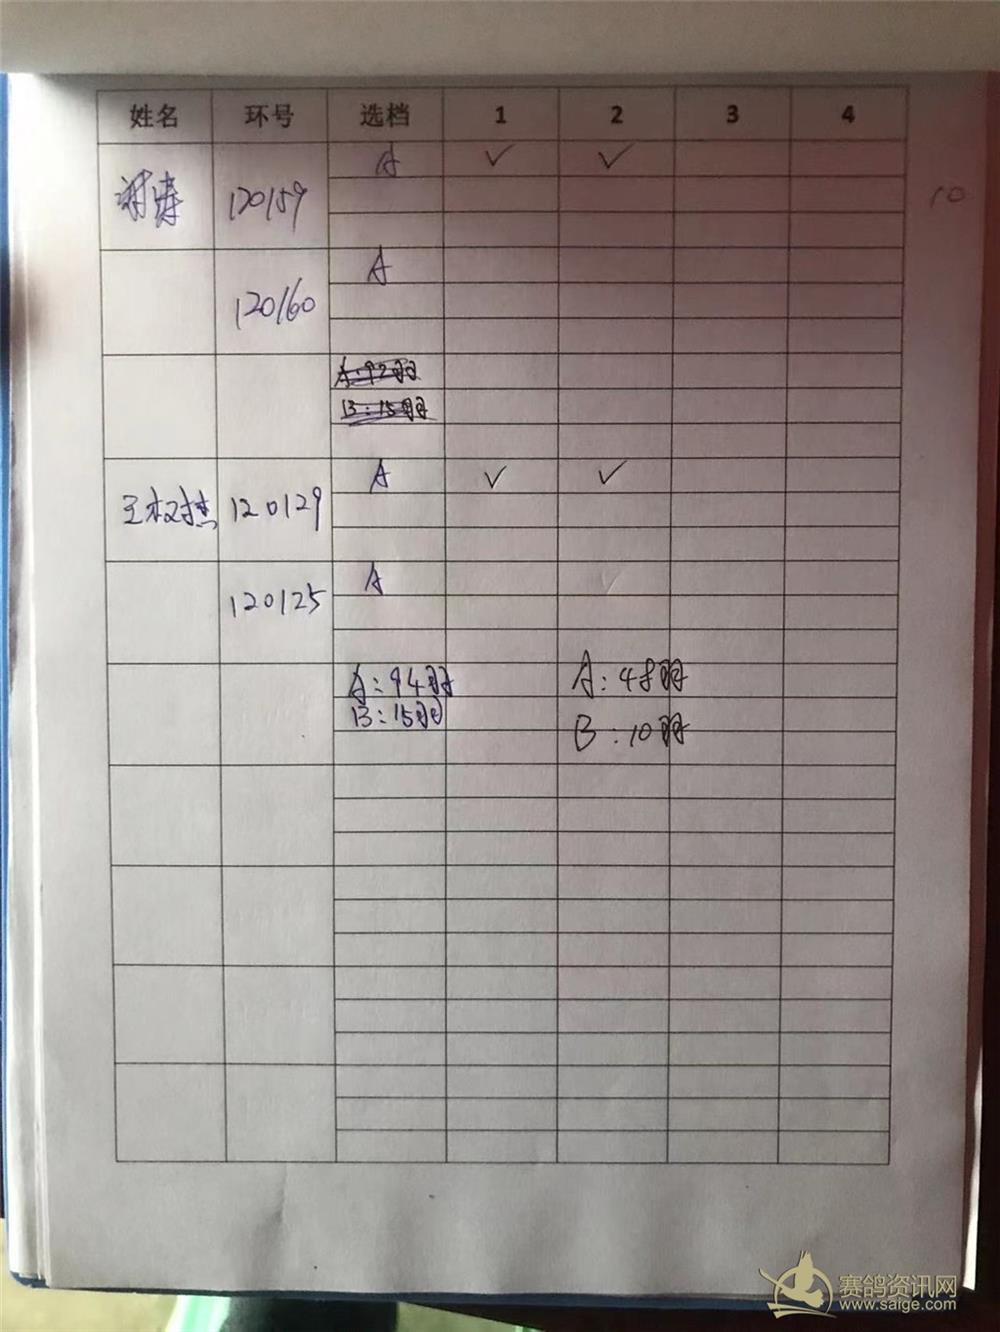 姓名 环号 选档 1 2 3 4
谢涛 120159 A ✓ ✓
10
120160 A
A:92羽
B:15羽
120129 A ✓ ✓
120125 A
A:94羽 A:48羽
B:15羽 B:10羽
赛鸽资讯网
www.saige.com